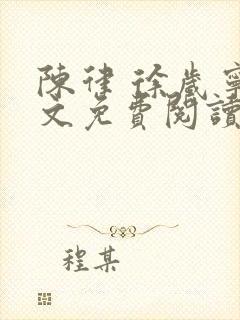 陳律 徐歲寧
文免費閱讀
程某